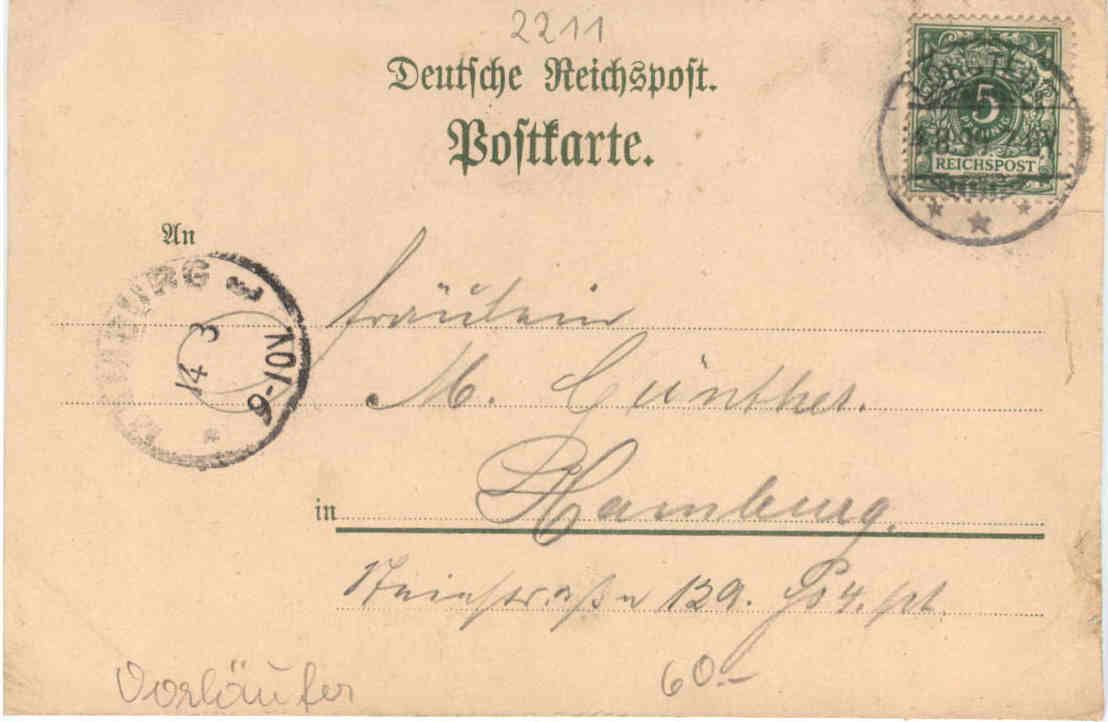 2211
Deutsche Reichspost.
Postkarte.
5
PFENNIG
REICHSPOST
An
HAMBURG 1
14 3
6-7 N
Fräulein
M. Günther.
in Hamburg.
Steinstraße 139. Hs 4. pt.
Vorläufer
60.-